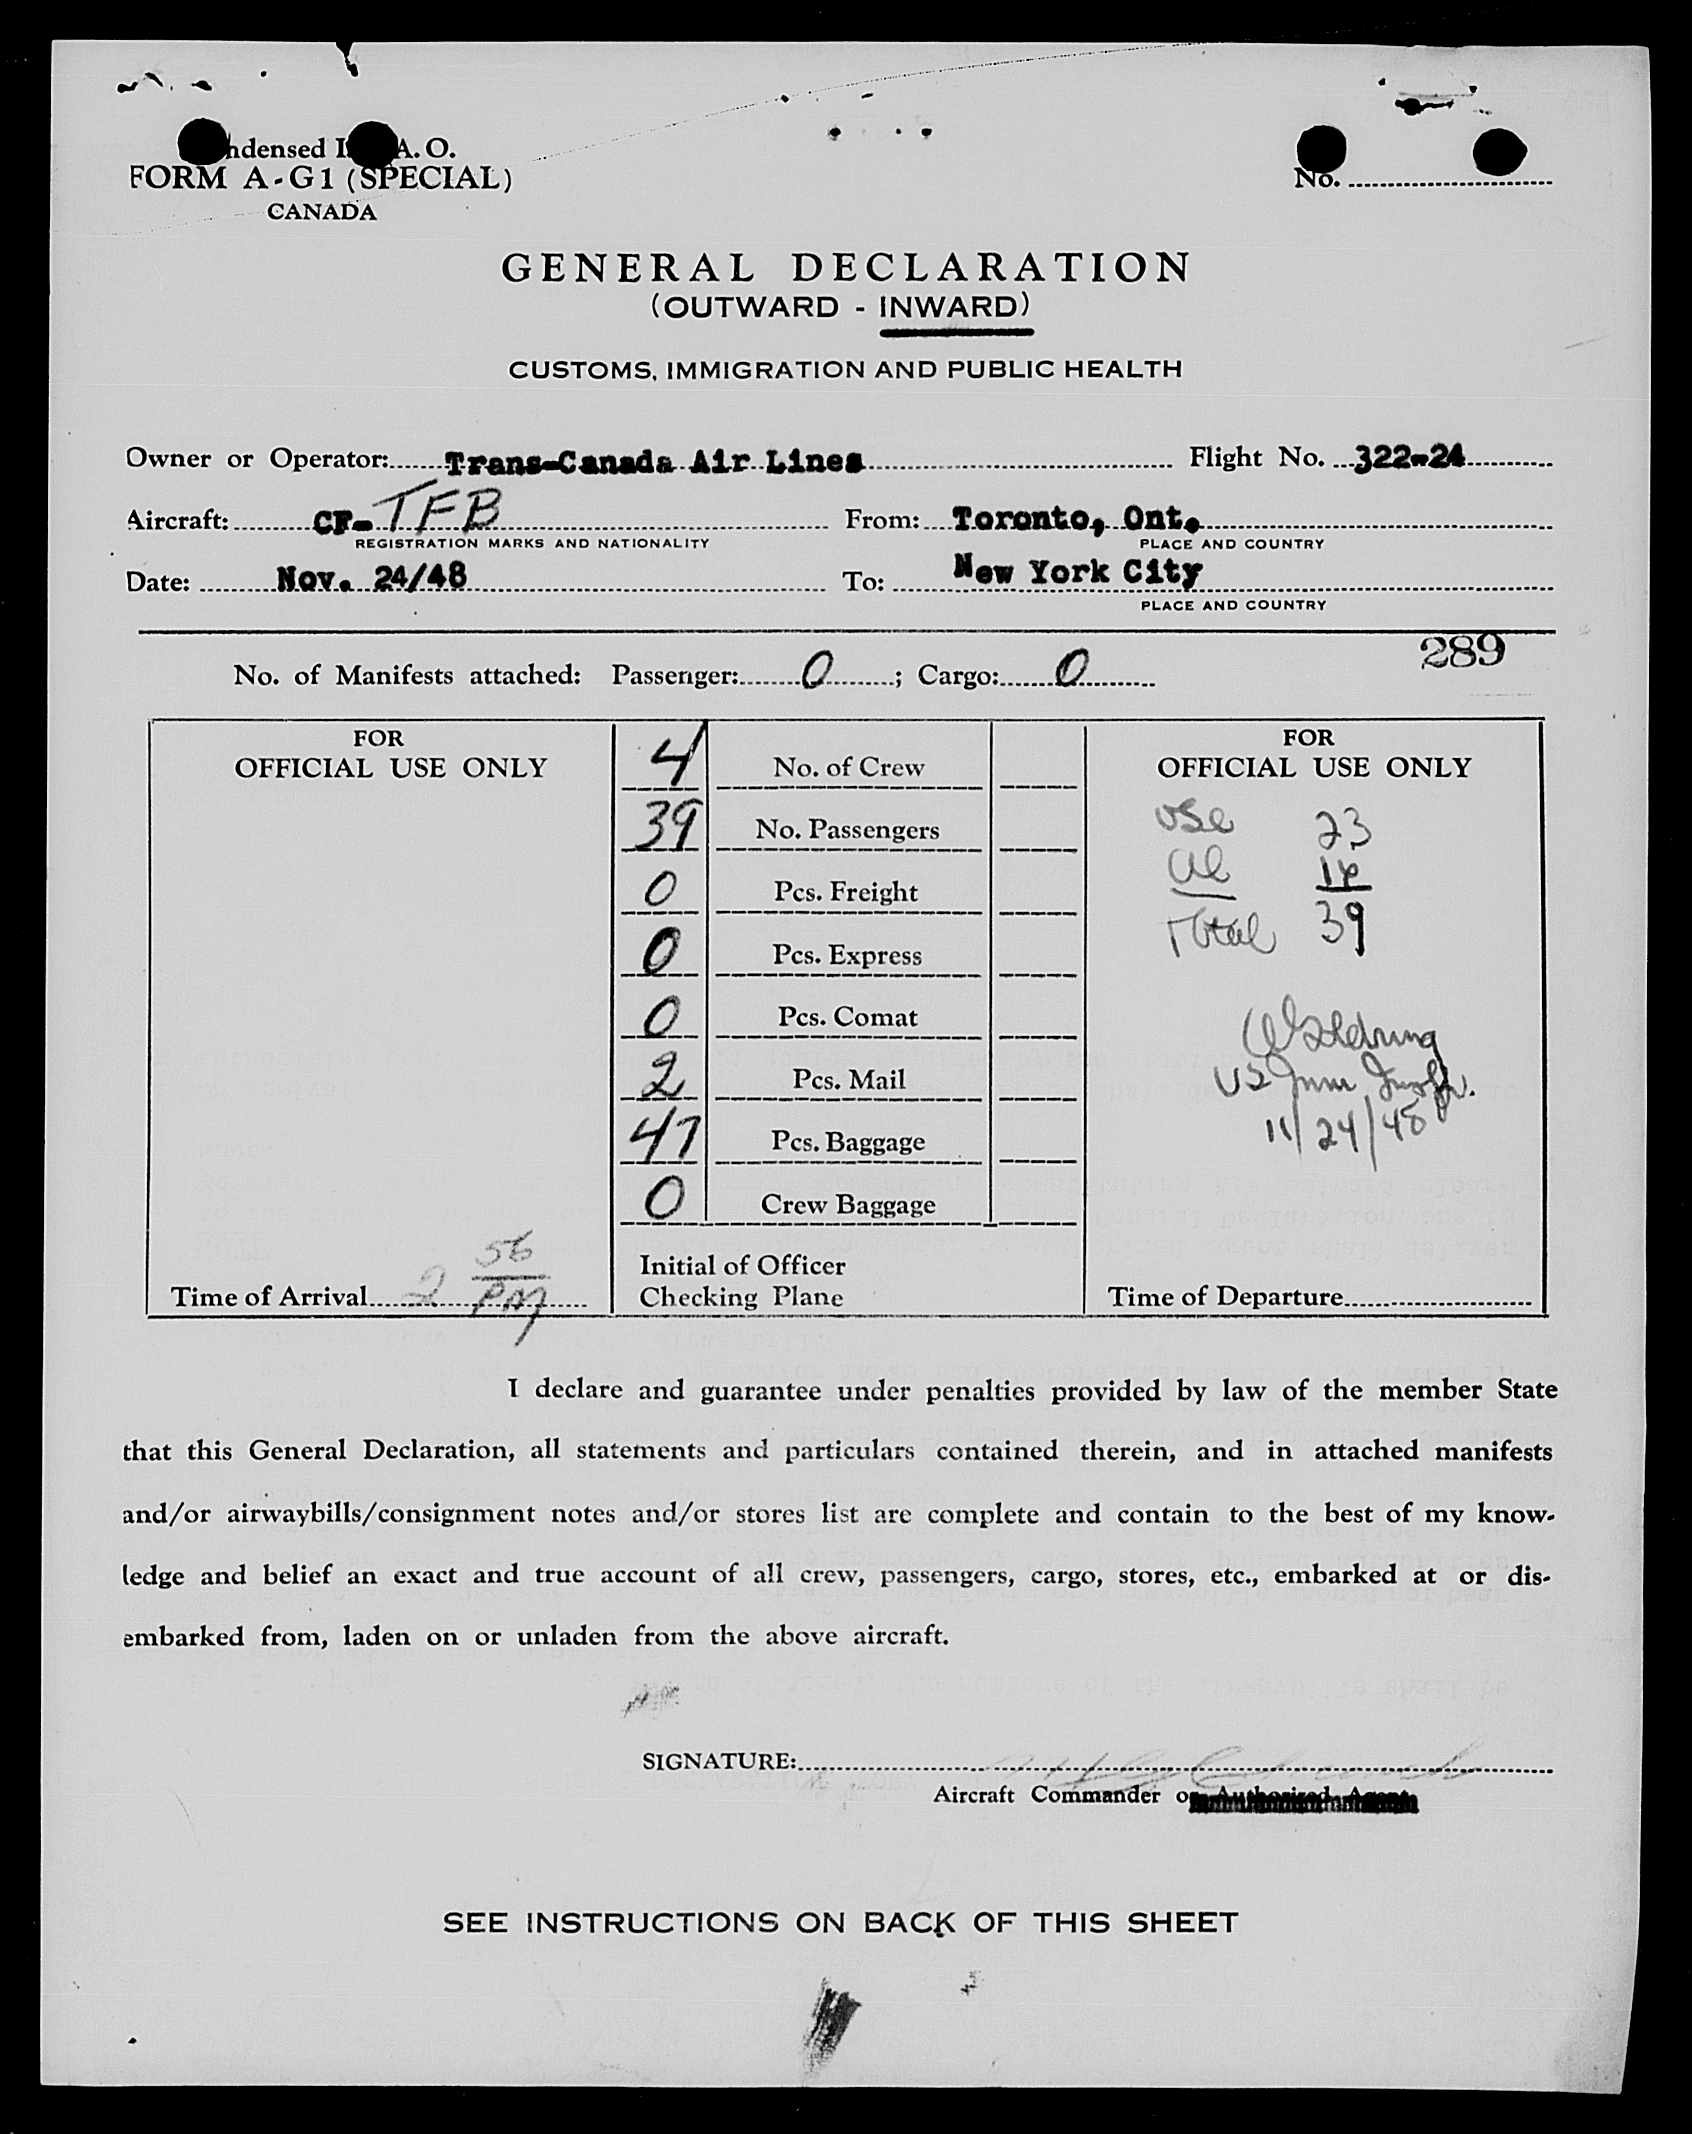 ndensed I A. O.
FORM A-G1 (SPECIAL)
CANADA
No.
GENERAL DECLARATION
(OUTWARD - INWARD)
CUSTOMS, IMMIGRATION AND PUBLIC HEALTH
Owner or Operator: Trans-Canada Air Lines Flight No. 322-24
Aircraft: CF-TFB From: Toronto, Ont.
REGISTRATION MARKS AND NATIONALITY PLACE AND COUNTRY
Date: Nov. 24/48 To: New York City
PLACE AND COUNTRY
289
No. of Manifests attached: Passenger: 0 ; Cargo: 0
FOR
OFFICIAL USE ONLY
Time of Arrival 2 56 PM
4 No. of Crew
39 No. Passengers
0 Pcs. Freight
0 Pcs. Express
0 Pcs. Comat
2 Pcs. Mail
47 Pcs. Baggage
0 Crew Baggage
Initial of Officer
Checking Plane
FOR
OFFICIAL USE ONLY
USC 23
al 16
Total 39
US Imm Inspr.
11/24/48
Time of Departure
I declare and guarantee under penalties provided by law of the member State
that this General Declaration, all statements and particulars contained therein, and in attached manifests
and/or airwaybills/consignment notes and/or stores list are complete and contain to the best of my know-
ledge and belief an exact and true account of all crew, passengers, cargo, stores, etc., embarked at or dis-
embarked from, laden on or unladen from the above aircraft.
SIGNATURE:
Aircraft Commander or Authorized Agent
SEE INSTRUCTIONS ON BACK OF THIS SHEET